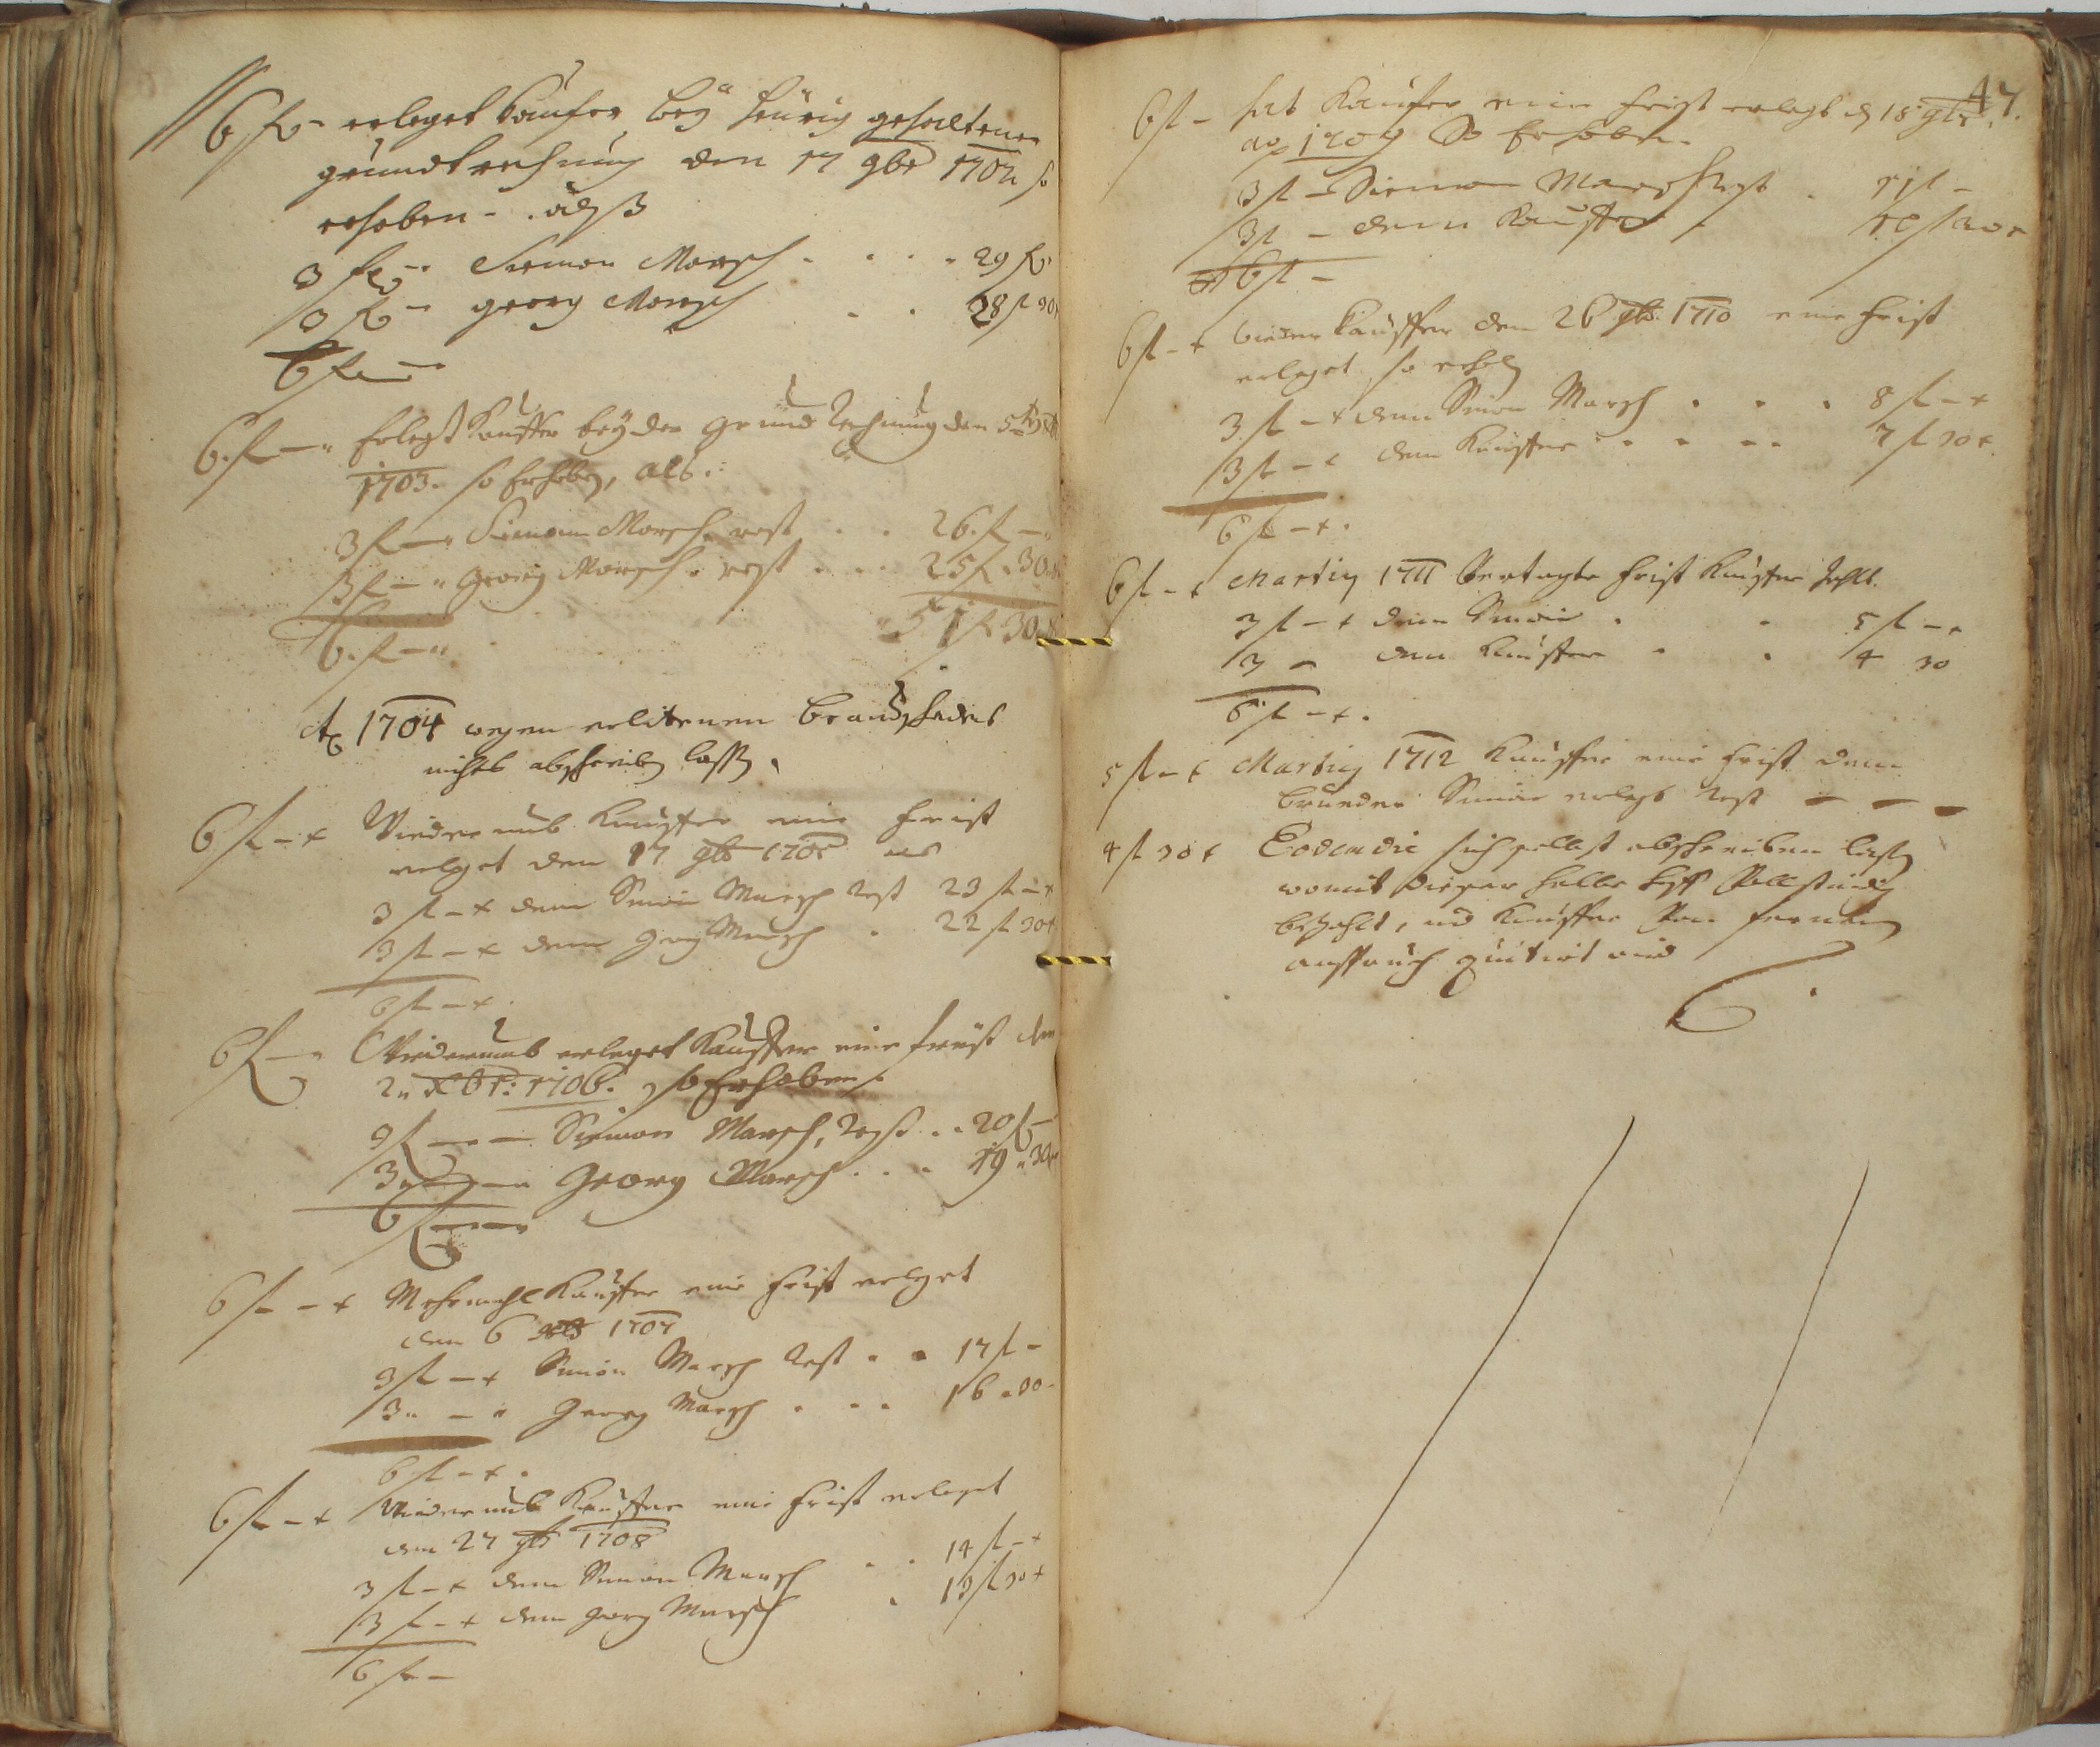 6 fl - erleget Kaufer beÿ heürig gehaltener
grundtrechnung den 17 9br 1702 so
erhoben - . alß
3 fl - Siemon Marsch . . . . 29 fl
3 fl - georg Marsch . . 28 fl 30
6 fl -
6. fl - " Erlegt Kauffer beÿ der Grund Rechnung den 5
1703. so Erhoben, als:
3 fl - " Siemon Marsch rest . . 26. fl - "
3 fl - " Georg Marsch. rest . . . 25 fl. 30
51 fl 30
6. fl - "
Ao 1704 wegen erlitenen brandschadens
nichts abschreiben lassen.
6 fl - x Wiederumb Kauffer eine frist
erleget den 17 9br 1705 als
3 fl - x dem Simon Marsch Rest 23 fl - x
3 fl - x dem Georg Marsch . 22 fl 30 x
6 fl - x.
6 fl - " Wiederumb erleget Kauffer eine frist den
2 " Xbr: 1706. so Erhoben
3 fl - - Siemon Marsch, Rest . . 20 fl -
3 " - " Georg Marsch . . . 19 " 30
6 fl
6 fl - x Mehrmahl Kauffer eine frist erleget
den 6 1707
3 fl - x Simon Marsch Rest . . 17 fl -
3 " - " Georg Marsch . . . 16 " 30 -
6 fl - x.
6 fl - x Wiederumb Kauffer eine frist erleget
den 27 9br 1708
3 fl - x dem Simon Marsch . . 14 fl - x
3 fl - x dem Georg Marsch . 13 fl 30 x
6 fl -
47.
6 fl - hat Kaufer eine frist erlegt d 18 9br
ao 1709 So Erhoben.
3 fl - Siemon Marsch Rest . 11 fl -
3 fl - dem Kauffer . 10 fl 30 x
6 fl -
6 fl - x wieder Kauffer den 26 9br. 1710 eine frist
erleget so erhoben
3 fl - x dem Simon Marsch . . . 8 fl - x
3 fl - x dem Kauffer . . . . 7 fl 30 x.
6 fl - x.
6 fl - x Martiny 1711 Vertagte frist Kauffer Zahlt.
3 fl - x dem Simon . . 5 fl - x
3 - dem Kauffer . . 4 30
6 fl - x.
5 fl - x Martiny 1712 Kauffer eine frist dem
bruedern Simon erlegt Rest - - -
4 fl 30 x Eodem die sich selbst abschreiben lassen
womit dieser Vollständig
bezahlt, und Kauffer Von fernern
anspruch quitirt wird